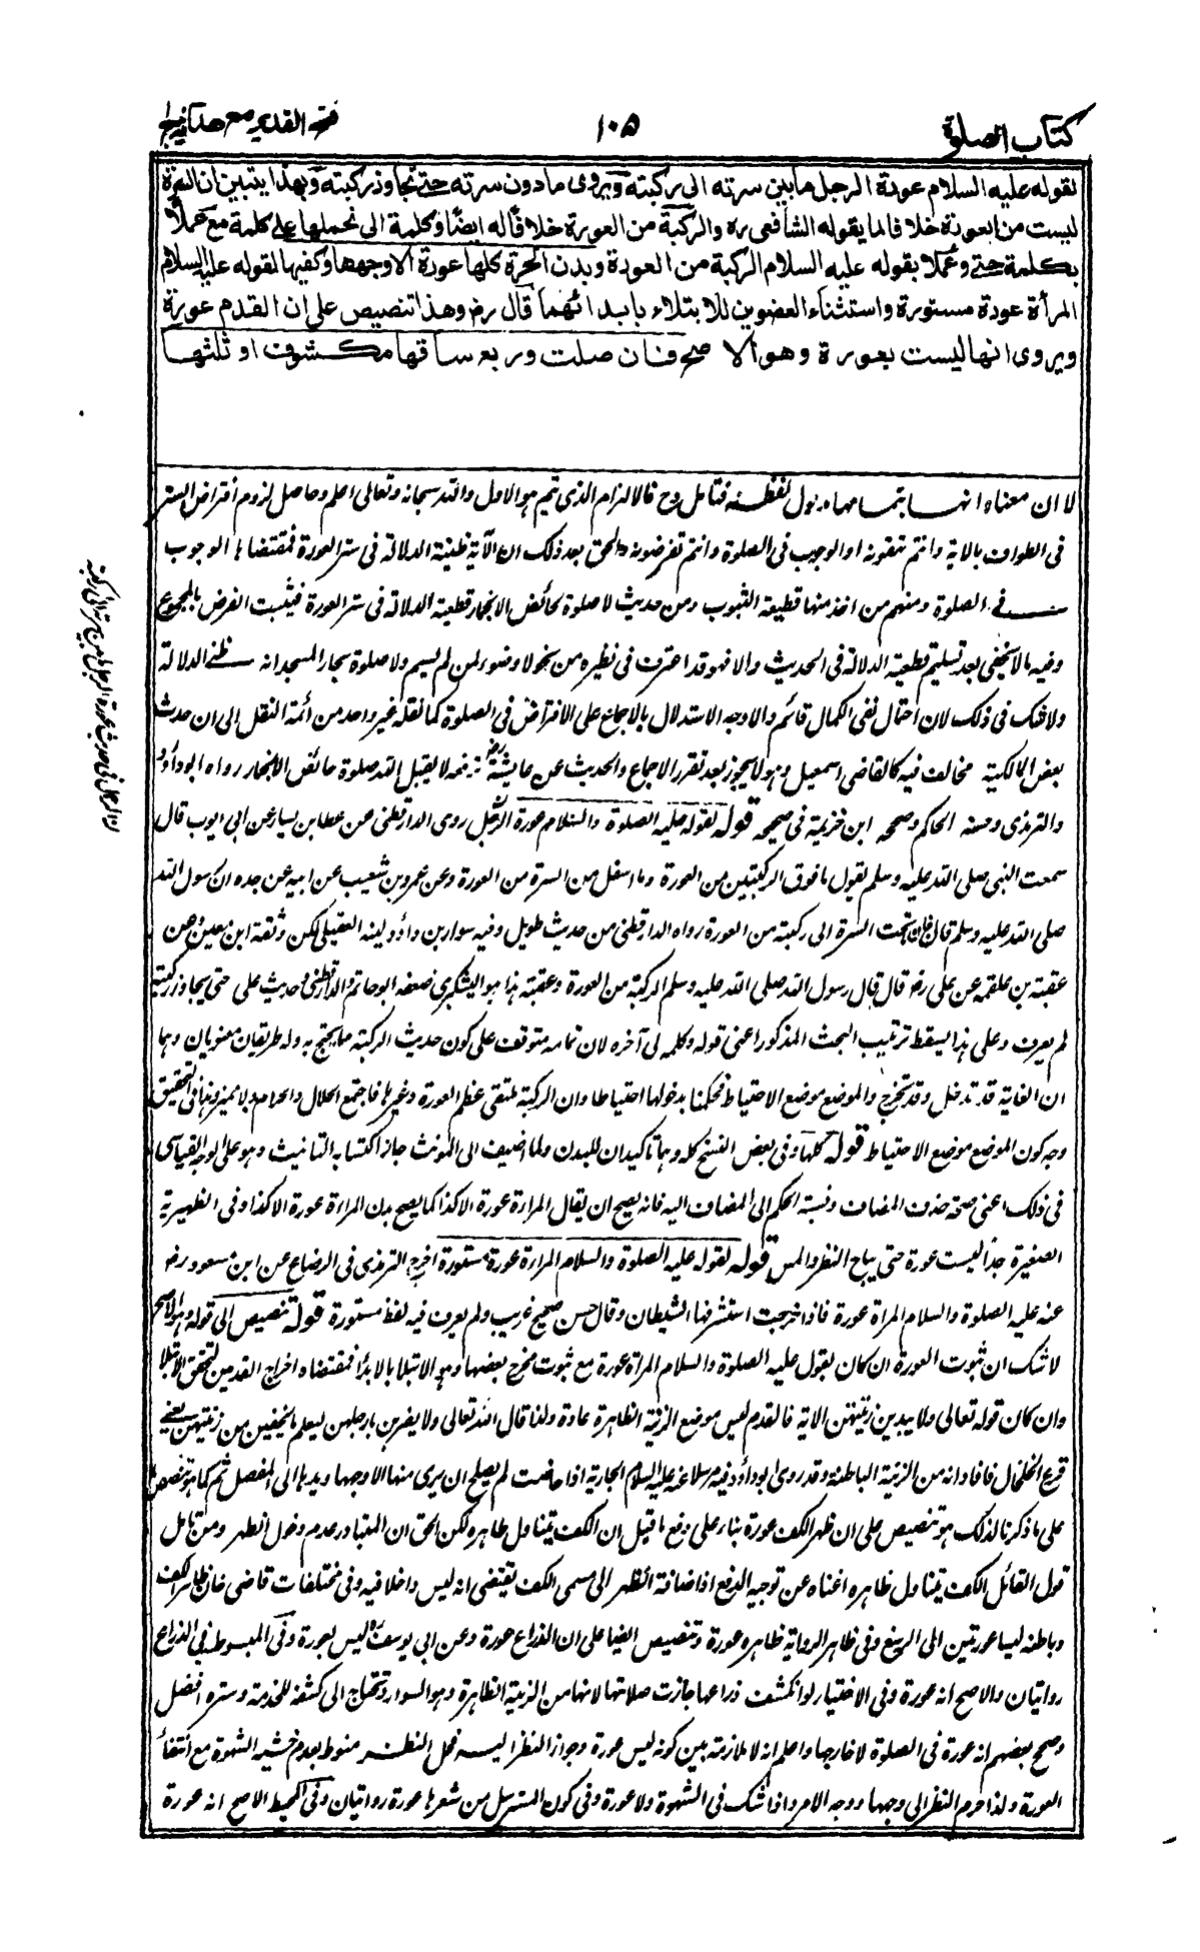 كتاب الصلوة
١٠٥
فتح القدير مع هدايه
لقوله عليه السلام عورة الرجل مابين سرته الى ركبته ويروى مادون سرته حتى تجاوز ركبته وبهذا يتبين ان السرة
ليست من العورة خلافا لما يقوله الشافعي ره والركبة من العورة خلافا له ايضا وكلمة الى نحملها على كلمة مع عملا
بكلمة حتى وعملا بقوله عليه السلام الركبة من العورة وبدن الحرة كلها عورة الا وجهها وكفيها لقوله عليه السلام
المرأة عورة مستورة واستثناء العضوين للابتلاء بابدائهما قال رض وهذا تنصيص على ان القدم عورة
ويروى انها ليست بعورة وهو الاصح فان صلت وربع ساقها مكشوف او ثلثها
لا ان معناه انها بتمامها مدلول لفظه فتامل وح فالالزام الذي تم هو الاول والله سبحانه وتعالى اعلم وحاصل لزوم افتراض الستر
فى الطواف بالاية وانتم تنفونه او الوجوب فى الصلوة وانتم تفرضونه والحق بعد ذلك ان الآية ظنية الدلالة فى ستر العورة فمقتضاها الوجوب
فى الصلوة ومنهم من اخذ منها قطيعة الثبوت ومن حديث لا صلوة لحائض الا بخمار قطعية الدلالة فى ستر العورة فيثبت الفرض بالمجموع
وفيه ما لا يخفى بعد تسليم قطعية الدلالة فى الحديث والا فهو قد اعترف فى نظيره من نحو لا وضوء لمن لم يسم ولا صلوة لجار المسجد انه ظنى الدلالة
ولا شك فى ذلك لان احتمال نفى الكمال قائم والاوجه الاستدلال بالاجماع على الافتراض فى الصلوة كما نقله غير واحد من ائمة النقل الى ان حدث
بعض المالكية فخالف فيه كالقاضى اسمعيل وهو لا يجوز بعد تقرر الاجماع والحديث عن عايشة رض ترفعه لا يقبل الله صلوة حائض الا بخمار رواه ابوداود
والترمذى وحسنه الحاكم وصححه ابن خزيمة فى صحيحه قوله لقوله عليه الصلوة والسلام عورة الرجل روى الدارقطنى عن عطا بن يسار عن ابى ايوب قال
سمعت النبى صلى الله عليه وسلم يقول ما فوق الركبتين من العورة وما اسفل من السرة من العورة وعن عمرو بن شعيب عن ابيه عن جده ان رسول الله
صلى الله عليه وسلم قال فان تحت السرة الى ركبته من العورة رواه الدارقطنى من حديث طويل وفيه سوار بن داود لينه العقيلى لكن وثقة ابن معين وعن
عقبة بن علقمه عن على رض قال قال رسول الله صلى الله عليه وسلم الركبة من العورة وعقبة هذا هو اليشكرى ضعفه ابوحاتم والدارقطنى وحديث على حتى يجاوز ركبتيه
لم يعرف وعلى هذا يسقط ترتيب البحث المذكور اعنى قوله وكلمه الى آخره لان تمامه متوقف على كون حديث الركبة مما يحتج به وله طريقان معنويان وهما
ان الغاية قد تدخل وقد تخرج والموضع موضع الاحتياط فحكمنا بدخولها احتياطا وان الركبة ملتقى عظم العورة وغيرها فاجتمع الحلال والحرام ولا مميز وهذا فى التحقيق
وجه كون الموضع موضع الاحتياط قوله كلها وفى بعض النسخ كله وهما تاكيدان للبدن ولما اضيف الى المونث جاز اكتسابه التانيث وهو على الوجه القياسى
فى ذلك اعنى صحة حذف المضاف ونسبة الحكم الى المضاف اليه فانه يصح ان يقال المراءة عورة الا كذا كما يصح بدن المراءة عورة الا كذا وفى الظهيرية
الصغيرة جدا ليست عورة حتى يباح النظر والمس قوله لقوله عليه الصلوة والسلام المراءة عورة مستورة اخرج الترمذى فى الرضاع عن ابن مسعود رض
عنه عليه الصلوة والسلام المراة عورة فاذا خرجت استشرفها الشيطان وقال حسن صحيح غريب ولم يعرف فيه لفظ مستورة قوله تنصيص الى قوله وهو الاصح
لا شك ان ثبوت العورة ان كان بقوله عليه الصلوة والسلام المراة عورة مع ثبوت مخرج بعضها وهو الابتلا بالابدا فمقتضاه اخراج القدمين لتحقق الابتلا
وان كان قوله تعالى ولا يبدين زينتهن الاية فالقدم ليس موضع الزينة الظاهرة عادة ولذا قال الله تعالى ولا يضربن بارجلهن ليعلم ما يخفين من زينتهن يعنى
قرع الخلخال فافاد انه من الزينة الباطنة وقد روى ابوداود فيه مرسلا عنه عليه السلام الجارية اذا حاضت لم يصلح ان يرى منها الا وجهها ويديها الى المفصل ثم كما هو تنصيص
على ما ذكرنا لذلك هو تنصيص على ان ظهر الكف عورة بناء على دفع ما قيل ان الكف يتناول ظاهره لكن الحق ان المتبادر عدم دخول الظهر ومن تامل
قول القائل الكف يتناول ظاهره اغناه عن توجيه الدفع اذ اضافة الظهر الى مسمى الكف يقتضى انه ليس داخلا فيه وفى مختلفات قاضى خان ظاهر الكف
وباطنه ليسا عورتين الى الرسغ وفى ظاهر الرواية ظاهره عورة وتنصيص ايضا على ان الذراع عورة وعن ابى يوسف ره ليس بعورة وفى المبسوط فى الذراع
روايتان والاصح انه عورة وفى الاختيار لو انكشف ذراعها جازت صلاتها لانها من الزينة الظاهرة وهو السوار وتحتاج الى كشفه للخدمة وستره افضل
وصحح بعضهم انه عورة فى الصلوة لا خارجها واعلم انه لا ملازمة بين كونه ليس عورة وجواز النظر اليه فحل النظر منوط بعدم خشية الشهوة مع انتفاء
العورة ولذا حرم النظر الى وجهها ووجه الامرد اذا شك فى الشهوة ولا عورة وفى كون المسترسل من شعرها عورة روايتان وفى المحيط الاصح انه عورة